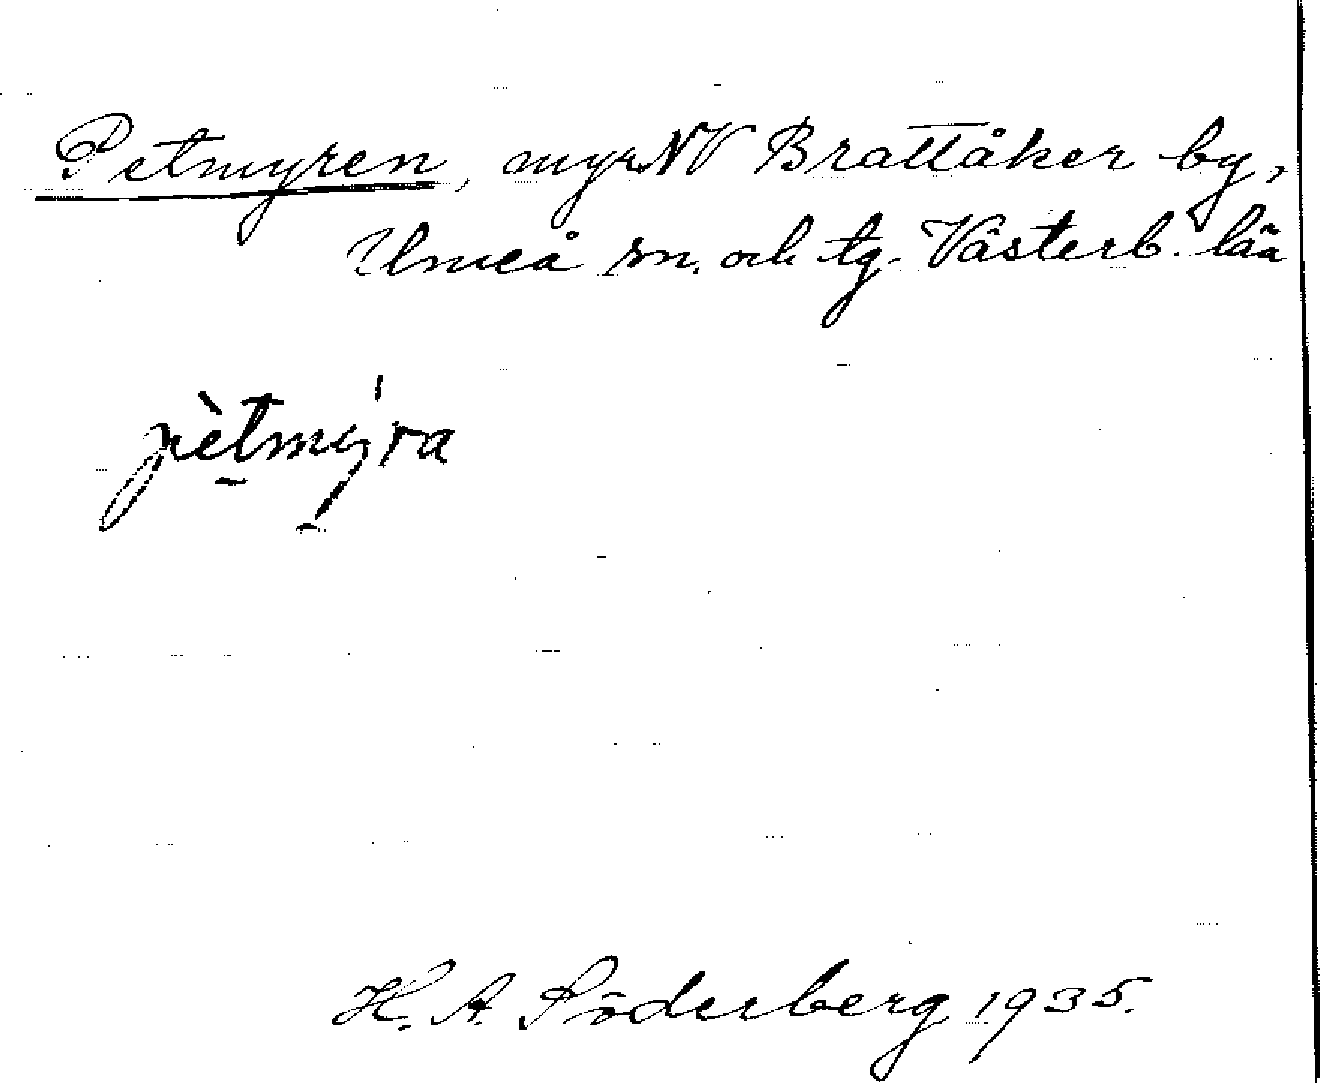 Petmyren, myr NV Brattåker by,
Umeå sn. och tg. Västerb. län
pètmy̱´ra
H. A. Söderberg 1935.